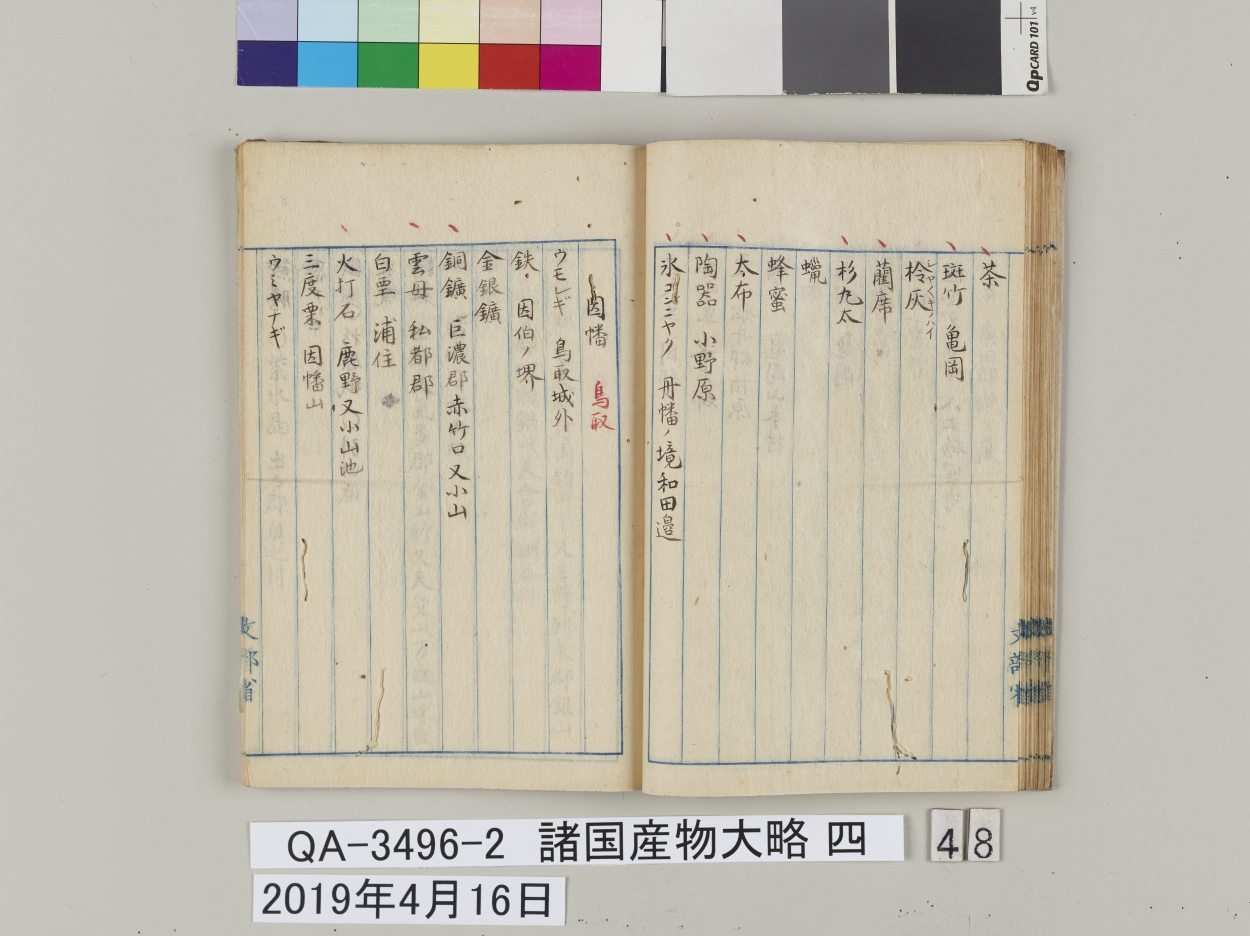 QPCARD 101 v4
茶
斑竹 亀岡
柃灰
シャクキノハイ
藺席
杉丸太
蠟
蜂蜜
太布
陶器 小野原
氷コンニヤク 丹幡ノ境和田邉
文部省
因幡 鳥取
ウモレギ 鳥取城外
鉄 因伯ノ堺
金銀鑛
銅鑛 巨濃郡赤竹口又小山
雲母 私都郡
白堊 浦住
火打石 鹿野又小山池
三度栗 因幡山
ウミヤナギ
文部省
QA-3496-2 諸国産物大略 四
48
2019年4月16日